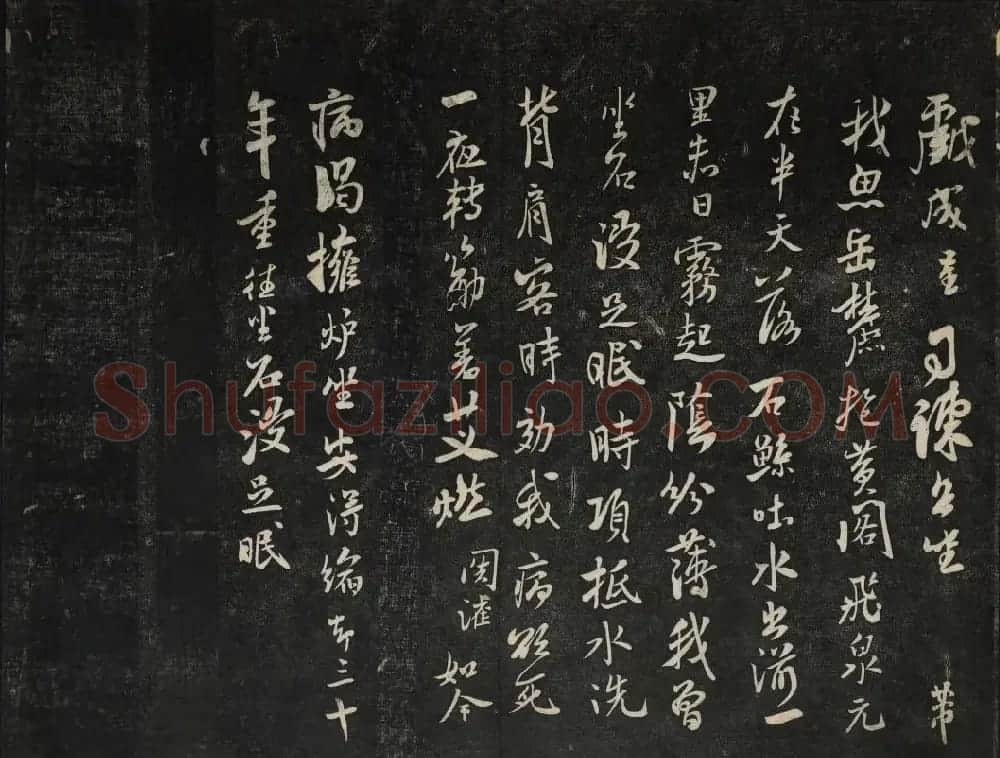 戲成呈 司諫台坐 芾
我思岳麓抱黄閣飛泉元
在半天落石鯨吐水出湔一
里赤日霧起陰紛薄我曾
坐石浸足眠時項抵水洗
背肩客時効我病欲死
一夜轉筋著艾燃 関灌 如今
病渴擁炉坐安得縮却三十
年重往坐石浸足眠
Shufaziliao.COM